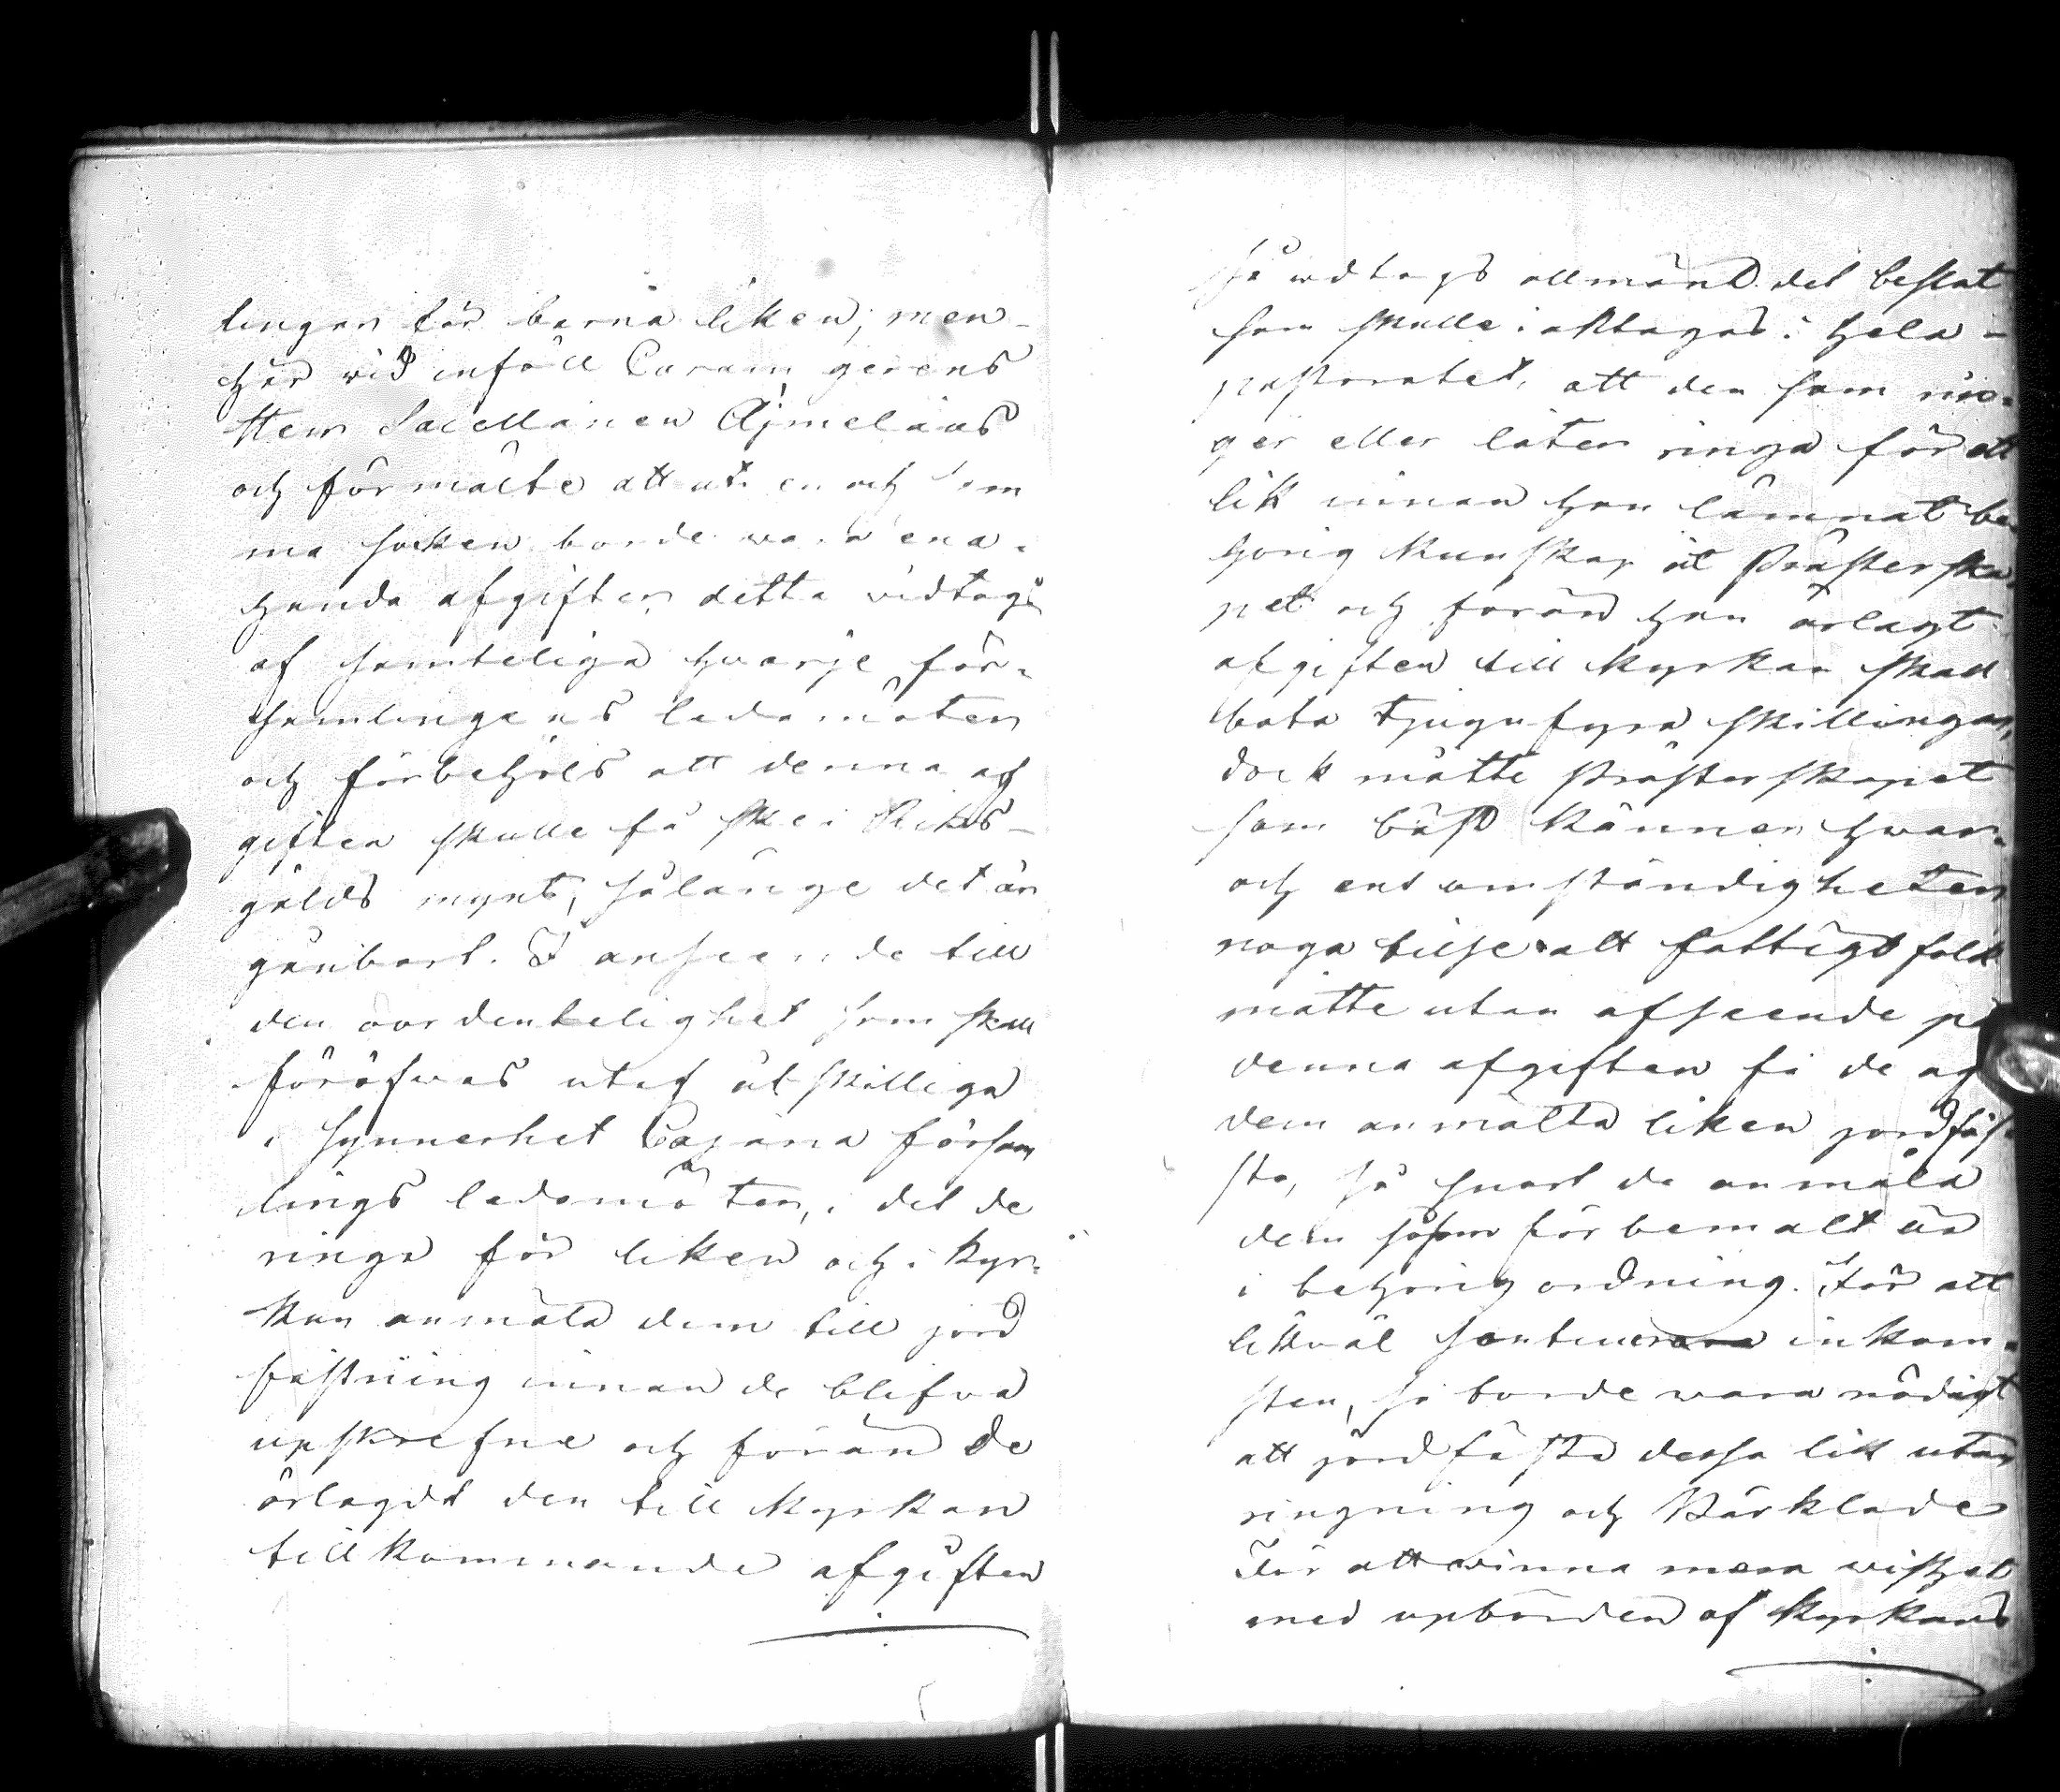 lingar för barna liken; men
här wid inföll Curam gerens
Herr Sacellanen Ajmelæus
och förmälte att uti en och sam
ma socken borde wara ena-
handa afgifter, detta vidtogs
af samteliga hvarje för-
samlingens ledamöter
och förbehöls att denna af
giften skulle få ske i Riks-
gälds mynt, sålänge det är
gånbart. I anseende till
den oordentelighet som skall
föröfwas utaf åtskilliga
i synnerhet Cajana försam
lings ledamöter, i det de
ringa för liken och i kyr-
kan anmäla dem till jord
fästning innan de blifva
upskrefne och förän de
ärlagdt den till kyrkan
tillkommande afgiften
Så widtogs allmänt det beslut
som skulle iakttagas i hela
pastoratet, att den som rin-
ger eller låter ringa för ett
lik innan han lämnat be
hörig kunskap åt Prästerska
pet och förän han ärlagt
afgiften till kyrkan skall
böta tjugufyra skillingar,
dock måtte Prästerskapet
som bäst känner hvar-
och ens omständigheter
noga tillse att fattigt folk
måtte utan afseende på
denna afgiften få de af
dem anmälta liken jordfä
sta, så snart de anmäla
dem såsom förbemält är
i behörig ordning. För att
likväl inkom-
sten, så borde wara nödigt
att jordfästa dessa lik utan
ringning och Bårkläde
För att winna mera wisshet
med upbörden af kyrkans